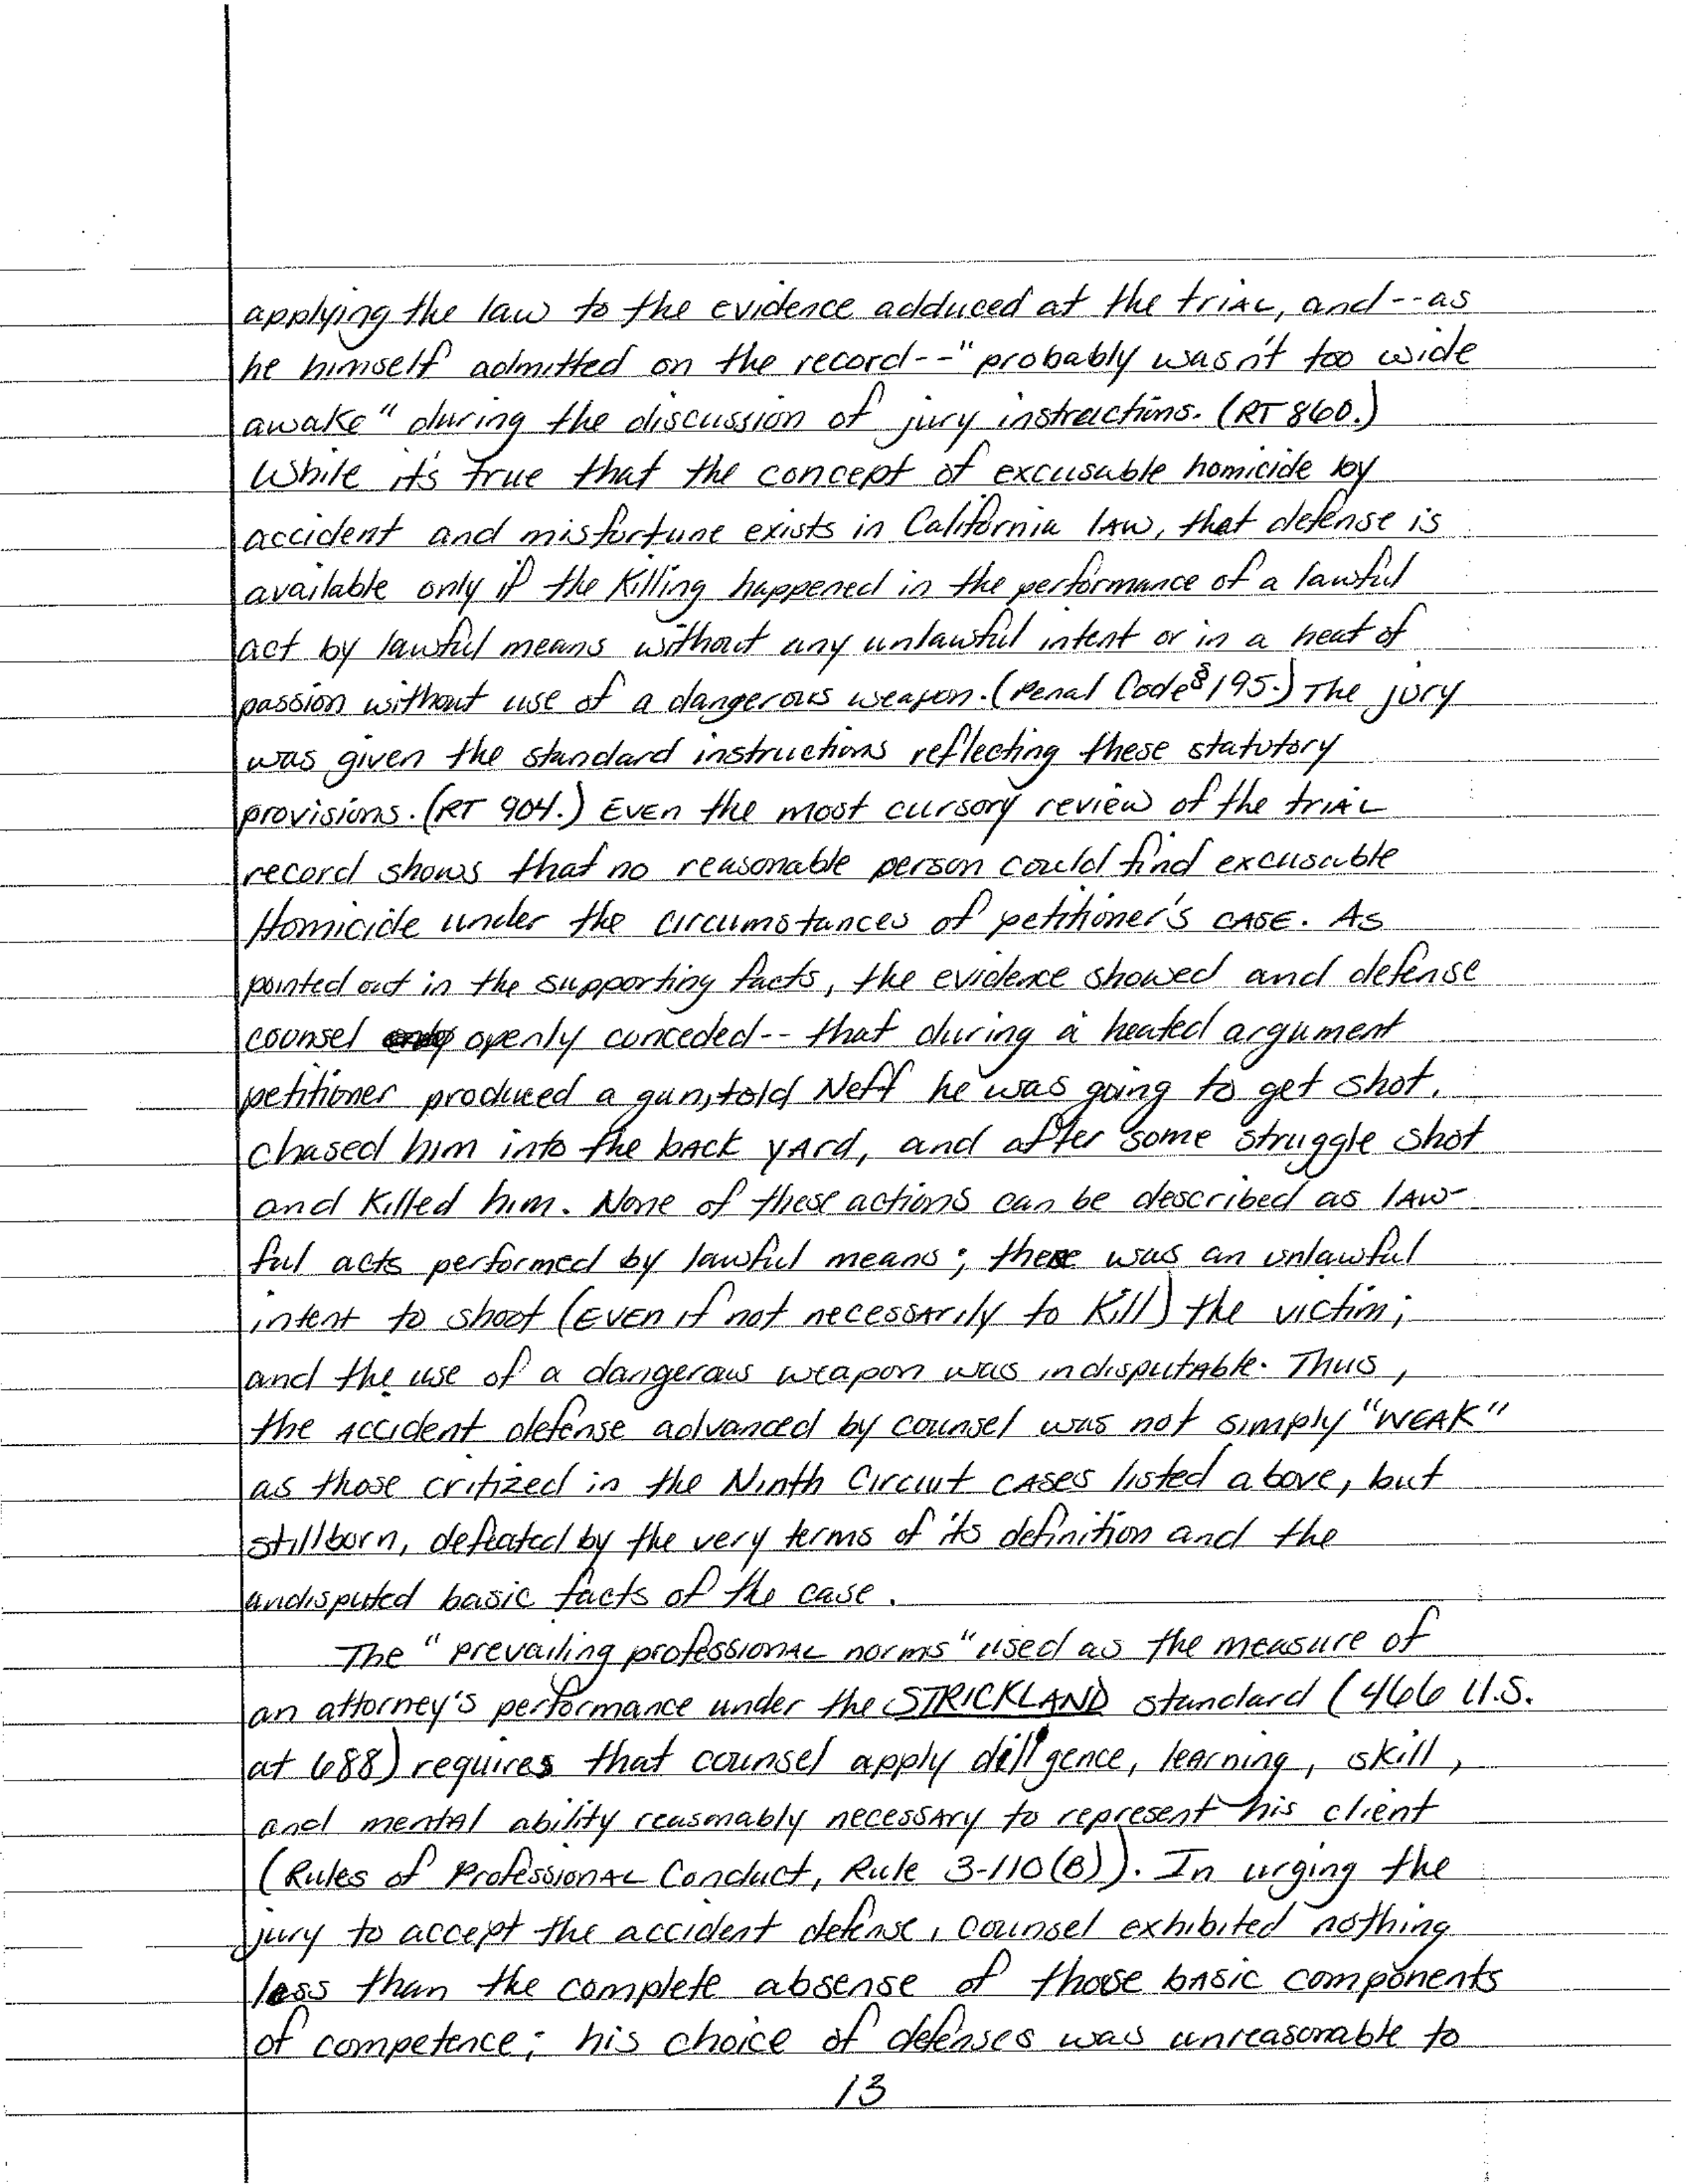 applying the law to the evidence adduced at the triAL, and--as
he himself admitted on the record--"probably wasn't too wide
awake" during the discussion of jury instructions. (RT 860.)
While it's true that the concept of excusable homicide by
accident and misfortune exists in California lAW, that defense is
available only if the Killing happened in the performance of a lawful
act by lawful means without any unlawful intent or in a heat of
passion without use of a dangerous weapon. (Penal Code § 195.) The jury
was given the standard instructions reflecting these statutory
provisions. (RT 904.) EVEN the most cursory review of the triAL
record shows that no reasonable person could find excusable
Homicide under the circumstances of petitioner's CASE. AS
pointed out in the supporting facts, the evidence showed and defense
counsel openly conceded-- that during a heated argument
petitioner produced a gun, told Neff he was going to get shot,
chased him into the bACK yARd, and after some struggle shot
and Killed him. None of these actions can be described as lAW-
ful acts performed by lawful means; there was an unlawful
intent to shoot (EVEN if not necessARily to Kill) the victim;
and the use of a dangerous weapon was indisputAble. Thus,
the ACCident defense advanced by counsel was not simply "WEAK"
as those critized in the Ninth Circuit CASES listed above, but
stillborn, defeated by the very terms of its definition and the
undisputed basic facts of the case.
The "prevailing professIONAL norms" used as the measure of
an attorney's performance under the STRICKLAND standard (466 U.S.
at 688) requires that counsel apply diligence, leArning, skill,
and mentAl ability reasonably necessARy to represent his client
(Rules of ProfessIONAL Conduct, Rule 3-110(B)). In urging the
jury to accept the accident defense, counsel exhibited nothing
less than the complete absense of those bASIC components
of competence; his choice of defenses was unreasonable to
13